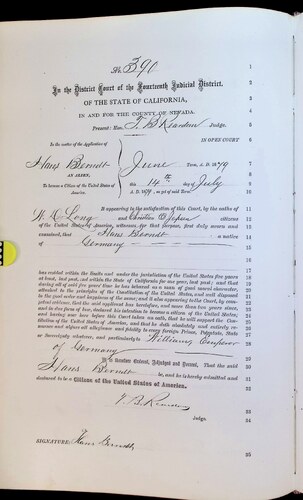 No. 390
In the District Court of the Fourteenth Judicial District.
OF THE STATE OF CALIFORNIA,
IN AND FOR THE COUNTY OF NEVADA.
Present: Hon. T. B. Reardan Judge.
In the matter of the Application of
IN OPEN COURT
Hans Berndt
June Term, A. D. 1879
AN ALIEN,
To become a Citizen of the United States of
America.
this 14th day of July
A. D. 1879, as yet of said Term
It appearing to the satisfaction of this Court, by the oaths of
W. D. Long and citizens
of the United States of America, witnesses for that purpose, first duly sworn and
examined, that Hans Berndt a native
of Germany
has resided within the limits and under the jurisdiction of the United States five years
at least, last past, and within the State of California for one year, last past; and that
during all of said five years' time he has behaved as a man of good moral character,
attached to the principles of the Constitution of the United States, and well disposed
to the good order and happiness of the same; and it also appearing to the Court, by competent
evidence, that the said applicant has heretofore, and more than two years since,
and in due form of law, declared his intention to become a citizen of the United States,
and having now here before this Court taken an oath, that he will support the Constitution
of the United States of America, and that he doth absolutely and entirely renounce
and abjure all allegiance and fidelity to every foreign Prince, Potentate, State
or Sovereignty whatever, and particularly to William, Emperor
of Germany
It is therefore Ordered, Adjudged and Decreed, That the said
Hans Berndt be, and he is hereby admitted and
declared to be a Citizen of the United States of America.
T. B. Reardan
Judge.
SIGNATURE: Hans Berndt
1
2
3
4
5
6
7
8
9
10
11
12
13
14
15
16
17
18
19
20
21
22
23
24
25
26
27
28
29
30
31
32
33
34
35